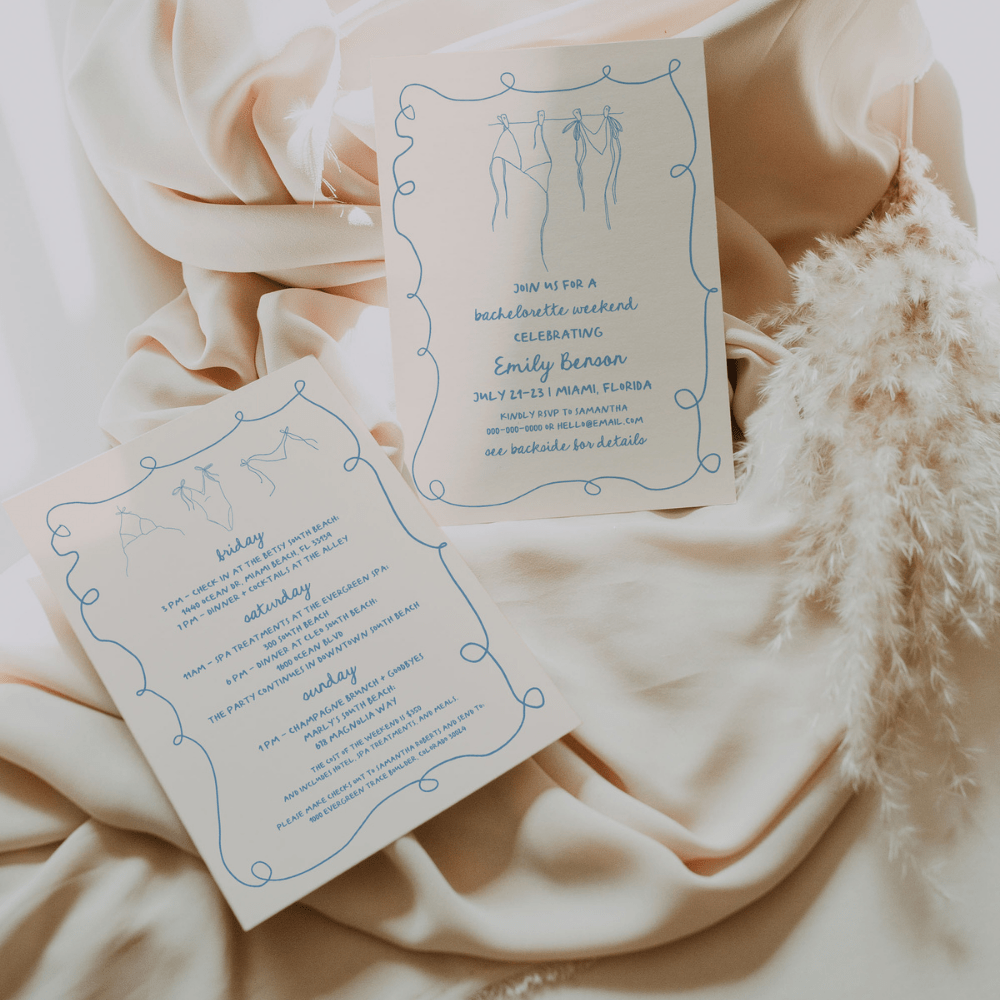 JOIN US FOR A
bachelorette weekend
CELEBRATING
Emily Benson
JULY 21-23 | MIAMI, FLORIDA
KINDLY RSVP TO SAMANTHA
000-000-0000 OR HELLO@EMAIL.COM
see backside for details
friday
3 PM - CHECK IN AT THE BETSY SOUTH BEACH:
1440 OCEAN DR, MIAMI BEACH, FL 33139
7 PM - DINNER + COCKTAILS AT THE ALLEY
saturday
11AM - SPA TREATMENTS AT THE EVERGREEN SPA:
300 SOUTH BEACH
6 PM - DINNER AT CLEO SOUTH BEACH:
1000 OCEAN BLVD
THE PARTY CONTINUES IN DOWNTOWN SOUTH BEACH
sunday
1 PM - CHAMPAGNE BRUNCH + GOODBYES
MARLY'S SOUTH BEACH:
678 MAGNOLIA WAY
THE COST OF THE WEEKEND IS $350
AND INCLUDES HOTEL, SPA TREATMENTS, AND MEALS.
PLEASE MAKE CHECKS OUT TO SAMANTHA ROBERTS AND SEND TO:
1000 EVERGREEN TRACE BOULDER, COLORADO